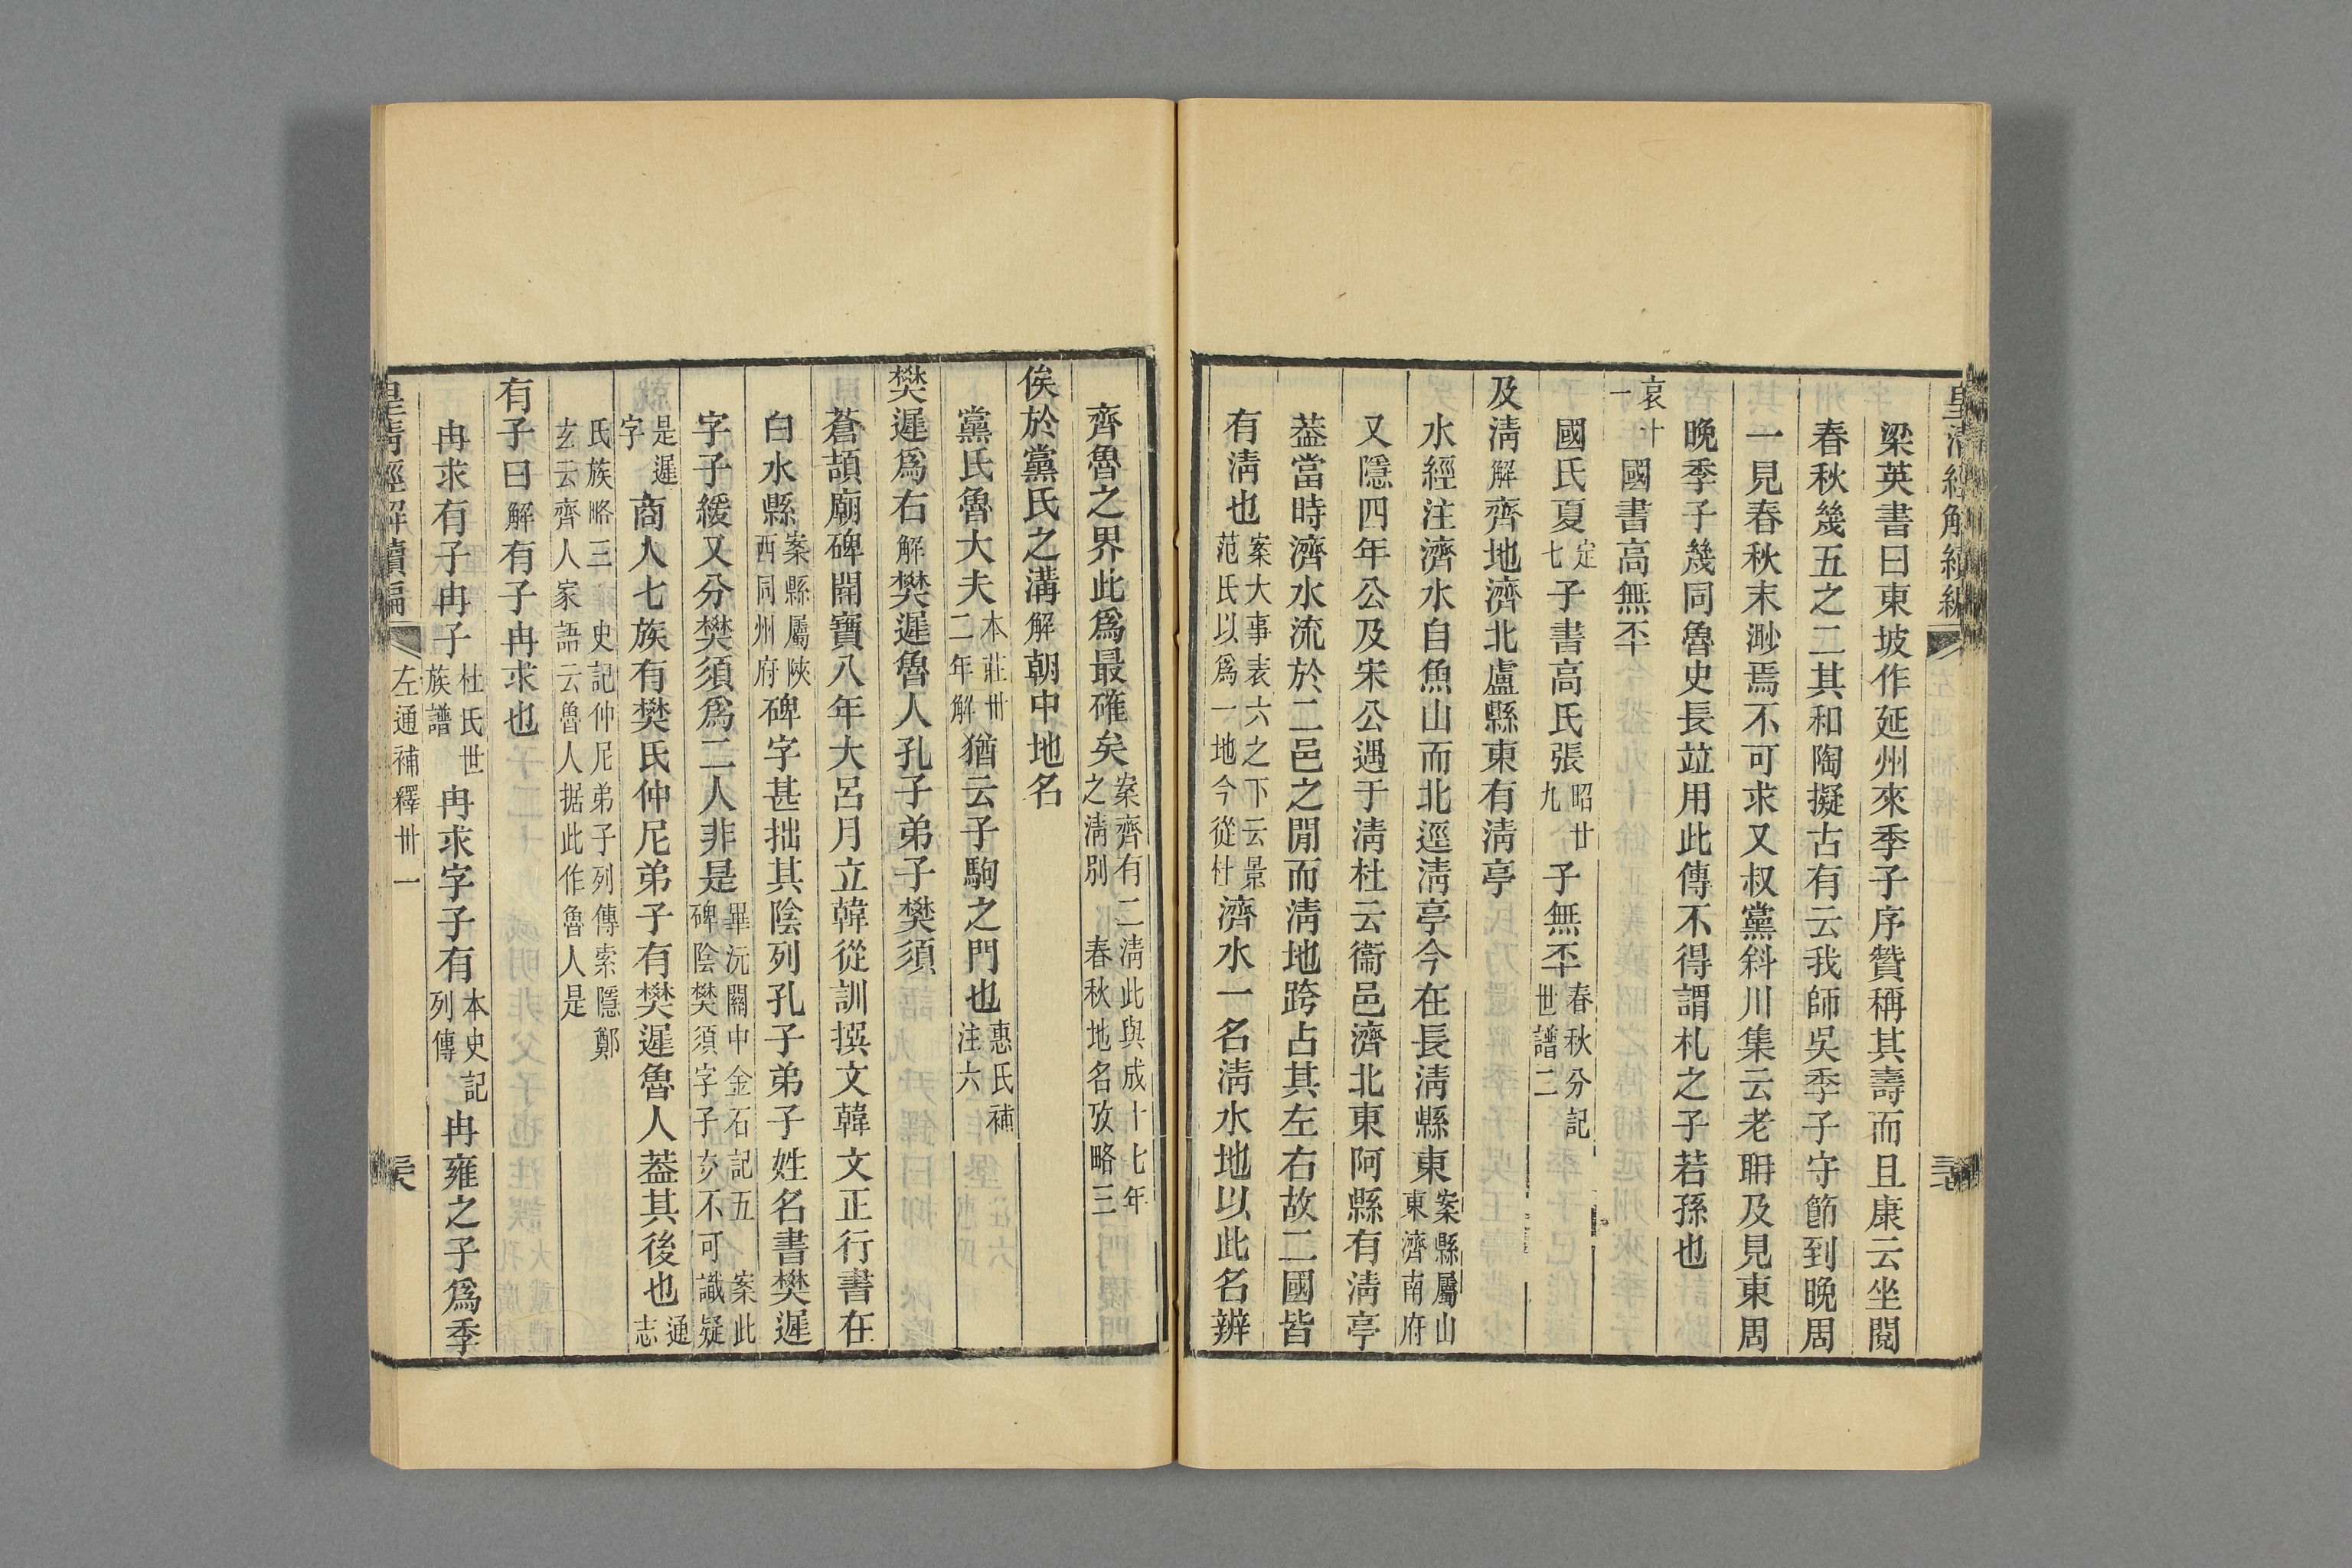 皇清經解續編
梁英書曰東坡作延州來季子序贊稱其壽而且康云坐閱
春秋幾五之二其和陶擬古有云我師吳季子守節到晚周
一見春秋末渺焉不可求又叔黨斜川集云老聃及見東周
晚季子幾同魯史長竝用此傳不得謂札之子若孫也
哀十一國書高無㔻
國氏夏定七子書高氏張昭廿九子無㔻春秋分記世譜二
及淸解齊地濟北盧縣東有淸亭
水經注濟水自魚山而北逕淸亭今在長淸縣東案縣屬山東濟南府
又隱四年公及宋公遇于淸杜云衞邑濟北東阿縣有淸亭
葢當時濟水流於二邑之閒而淸地跨占其左右故二國皆
有淸也案大事表六之下云景范氏以爲一地今從杜濟水一名淸水地以此名辨
齊魯之界此爲最確矣案齊有二淸此與成十七年之淸別 春秋地名攷略三
俟於黨氏之溝解朝中地名
黨氏魯大夫本莊卅二年解猶云子駒之門也惠氏補注六
樊遲爲右解樊遲魯人孔子弟子樊須
蒼頡廟碑開寶八年大呂月立韓從訓撰文韓文正行書在
白水縣案縣屬陜西同州府碑字甚拙其陰列孔子弟子姓名書樊遲
字子緩又分樊須爲二人非是畢沅關中金石記五 案此碑陰樊須字子亥不可識疑
是遲字商人七族有樊氏仲尼弟子有樊遲魯人葢其後也通志
氏族略三 史記仲尼弟子列傳索隱鄭玄云齊人家語云魯人据此作魯人是
有子曰解有子冉求也
冉求有子冉子杜氏世族譜冉求字子有本史記列傳冉雍之子爲季
皇淸經解續編
左通補釋卅一